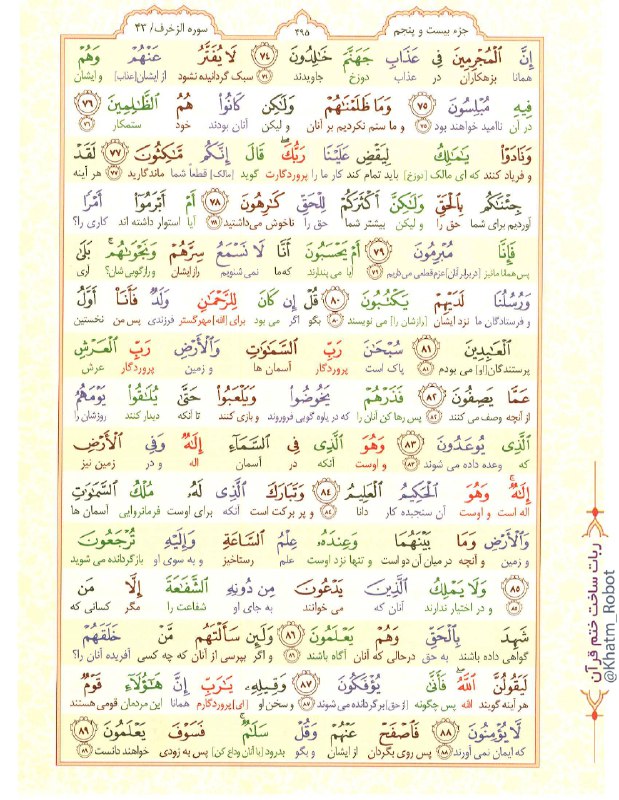 جزء بیست و پنجم
۴۹۵
سوره الزخرف/ ۴۳
إِنَّ الْمُجْرِمِينَ فِي عَذَابِ جَهَنَّمَ خَالِدُونَ ﴿٧٤﴾ لَا يُفَتَّرُ عَنْهُمْ وَهُمْ
همانا بزهکاران در عذاب دوزخ جاویدند ﴿۷۴﴾ سبک گردانیده نشود از ایشان[عذاب] و ایشان
فِيهِ مُبْلِسُونَ ﴿٧٥﴾ وَمَا ظَلَمْنَاهُمْ وَلَٰكِن كَانُوا هُمُ الظَّالِمِينَ ﴿٧٦﴾
در آن ناامید خواهند بود ﴿۷۵﴾ و ما ستم نکردیم بر آنان و لیکن آنان بودند خود ستمکار ﴿۷۶﴾
وَنَادَوْا يَا مَالِكُ لِيَقْضِ عَلَيْنَا رَبُّكَ ۖ قَالَ إِنَّكُم مَّاكِثُونَ ﴿٧٧﴾ لَقَدْ
و فریاد کنند که ای مالک [دوزخ] باید تمام کند کار ما را پروردگارت گوید [مالک] قطعاً شما ماندگارید ﴿۷۷﴾ هر آینه
جِئْنَاكُم بِالْحَقِّ وَلَٰكِنَّ أَكْثَرَكُمْ لِلْحَقِّ كَارِهُونَ ﴿٧٨﴾ أَمْ أَبْرَمُوا أَمْرًا
آوردیم برای شما حق را و لیکن بیشتر شما حق را ناخوش می‌داشتید ﴿۷۸﴾ آیا استوار داشته اند کاری را؟
فَإِنَّا مُبْرِمُونَ ﴿٧٩﴾ أَمْ يَحْسَبُونَ أَنَّا لَا نَسْمَعُ سِرَّهُمْ وَنَجْوَاهُم ۚ بَلَىٰ
پس همانا ما نیز [در برابر آنان] عزم قطعی می‌داریم ﴿۷۹﴾ آیا می پندارند که ما نمی شنویم رازایشان و رازگویی شان؟ آری
وَرُسُلُنَا لَدَيْهِمْ يَكْتُبُونَ ﴿٨٠﴾ قُلْ إِن كَانَ لِلرَّحْمَٰنِ وَلَدٌ فَأَنَا أَوَّلُ
و فرستادگان ما نزد ایشان [رازشان را] می نویسند ﴿۸۰﴾ بگو اگر می بود برای [الله] مهرگستر فرزندی پس من نخستین
الْعَابِدِينَ ﴿٨١﴾ سُبْحَانَ رَبِّ السَّمَاوَاتِ وَالْأَرْضِ رَبِّ الْعَرْشِ
پرستندگان[او] می بودم ﴿۸۱﴾ پاک است پروردگار آسمان ها و زمین پروردگار عرش
عَمَّا يَصِفُونَ ﴿٨٢﴾ فَذَرْهُمْ يَخُوضُوا وَيَلْعَبُوا حَتَّىٰ يُلَاقُوا يَوْمَهُمُ
از آنچه وصف می کنند ﴿۸۲﴾ پس رها کن آنان را که در یاوه گویی فروروند و بازی کنند تا آنکه دیدار کنند روزشان را
الَّذِي يُوعَدُونَ ﴿٨٣﴾ وَهُوَ الَّذِي فِي السَّمَاءِ إِلَٰهٌ وَفِي الْأَرْضِ
که وعده داده می شوند ﴿۸۳﴾ و اوست آنکه در آسمان اله و در زمین نیز
إِلَٰهٌ ۚ وَهُوَ الْحَكِيمُ الْعَلِيمُ ﴿٨٤﴾ وَتَبَارَكَ الَّذِي لَهُ مُلْكُ السَّمَاوَاتِ
اله است و اوست آن سنجیده کار دانا ﴿۸۴﴾ و پر برکت است آنکه برای اوست فرمانروایی آسمان ها
وَالْأَرْضِ وَمَا بَيْنَهُمَا وَعِندَهُ عِلْمُ السَّاعَةِ وَإِلَيْهِ تُرْجَعُونَ
و زمین و آنچه در میان آن دو است و تنها نزد اوست علم رستاخیز و به سوی او بازگردانده می شوید
﴿٨٥﴾ وَلَا يَمْلِكُ الَّذِينَ يَدْعُونَ مِن دُونِهِ الشَّفَاعَةَ إِلَّا مَن
﴿۸۵﴾ و در اختیار ندارند آنان که می خوانند به جای او شفاعت را مگر کسانی که
شَهِدَ بِالْحَقِّ وَهُمْ يَعْلَمُونَ ﴿٨٦﴾ وَلَئِن سَأَلْتَهُم مَّنْ خَلَقَهُمْ
گواهی داده باشند به حق درحالی که آنان آگاه باشند ﴿۸۶﴾ و اگر بپرسی از آنان که چه کسی آفریده آنان را؟
لَيَقُولُنَّ اللَّهُ ۖ فَأَنَّىٰ يُؤْفَكُونَ ﴿٨٧﴾ وَقِيلِهِ يَا رَبِّ إِنَّ هَٰؤُلَاءِ قَوْمٌ
هر آینه گویند الله پس چگونه [از حق] برگردانده می شوند ﴿۸۷﴾ و سخن او [ای] پروردگارم همانا این مردمان قومی هستند
لَّا يُؤْمِنُونَ ﴿٨٨﴾ فَاصْفَحْ عَنْهُمْ وَقُلْ سَلَامٌ ۚ فَسَوْفَ يَعْلَمُونَ ﴿٨٩﴾
که ایمان نمی آورند ﴿۸۸﴾ پس روی بگردان از ایشان و بگو بدرود [با آنان وداع کن] پس به زودی خواهند دانست ﴿۸۹﴾
ربات ساخت ختم قرآن
@Khatm_Robot